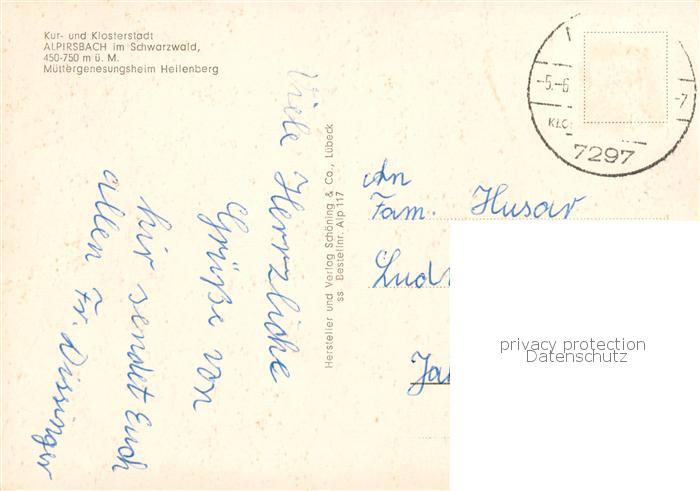 Kur- und Klosterstadt
ALPIRSBACH im Schwarzwald,
450-750 m ü. M.
Müttergenesungsheim Heilenberg
Viele Herrzliche
Grüße von
hir sendet Euch
allen Fr. Dissinger
Hersteller und Verlag Schöning & Co., Lübeck
ss Bestellnr. Alp 117
-5.-6
-7
7297
An
Fam. Husar
privacy protection
Datenschutz